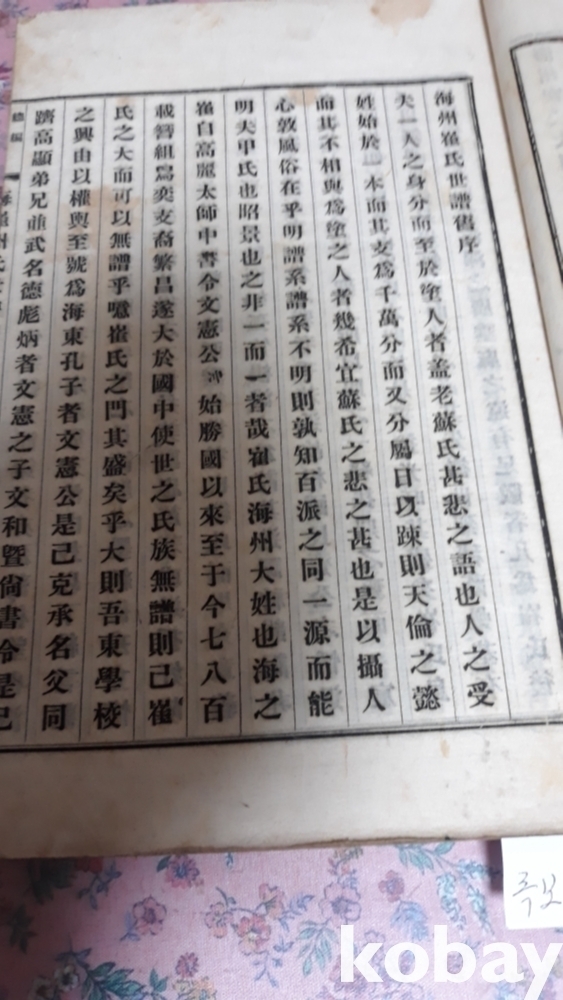 海州崔氏世譜舊序
夫一人之身分而至於塗人者盖老蘇氏甚悲之語也人之受
姓始於一本而其支爲千萬分而又分屬日以踈則天倫之懿
而其不相與爲塗之人者幾希宜蘇氏之悲之甚也是以攝人
心敦風俗在乎明譜系譜系不明則孰知百派之同一源而能
明夫甲氏也昭景也之非一而一者哉崔氏海州大姓也海之
崔自高麗太師中書令文憲公冲始勝國以來至于今七八百
載簪組爲奕支裔繁昌遂大於國中使世之氏族無譜則已崔
氏之大而可以無譜乎噫崔氏之門其盛矣乎大則吾東學校
之興由以權輿至號爲海東孔子者文憲公是已克承名父同
躋高顯弟兄並武名德彪炳者文憲之子文和曁尙書令是已
족보
kobay